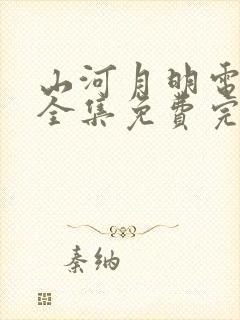 山河月明电
全集免费完
秦纳